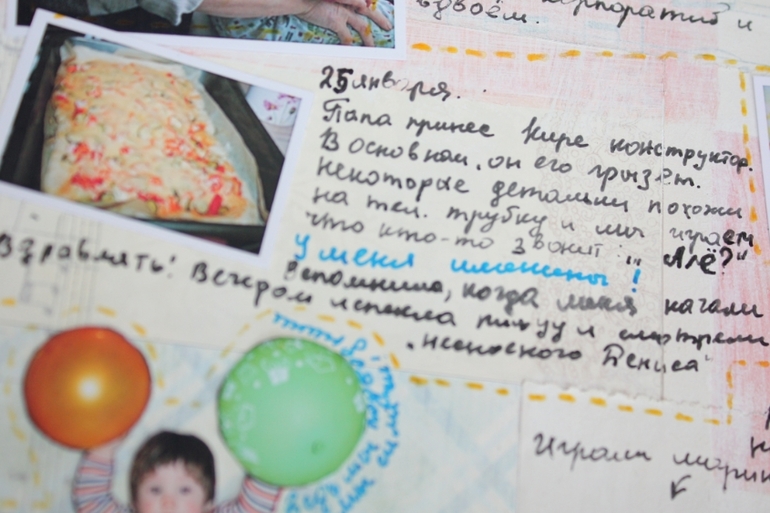 корпоратив и
вдвоём.
25 января.
Папа принес Кире конструктор.
В основном, он его грызет.
Некоторые детальки похожи
на тел. трубку и мы играем
что кто-то звонит: „Алё?"
У меня именины!
Вспомнила, когда меня начали
вздравлять! Вечером испекла пиццу и смотрели
„несносного Дениса"
Играли